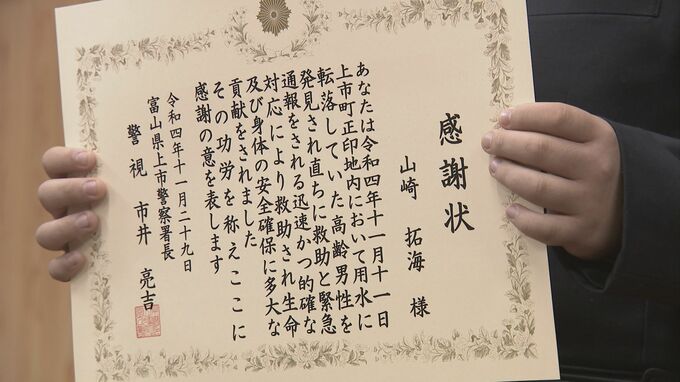 感謝状
山崎 拓海 様
あなたは令和四年十一月十一日
上市町正印地内において用水に
転落していた高齢男性を
発見され直ちに救助と緊急
通報をされる迅速かつ的確な
対応により救助され生命
及び身体の安全確保に多大な
貢献をされました
その功労を称えここに
感謝の意を表します
令和四年十一月二十九日
富山県上市警察署長
警視 市井 亮吉